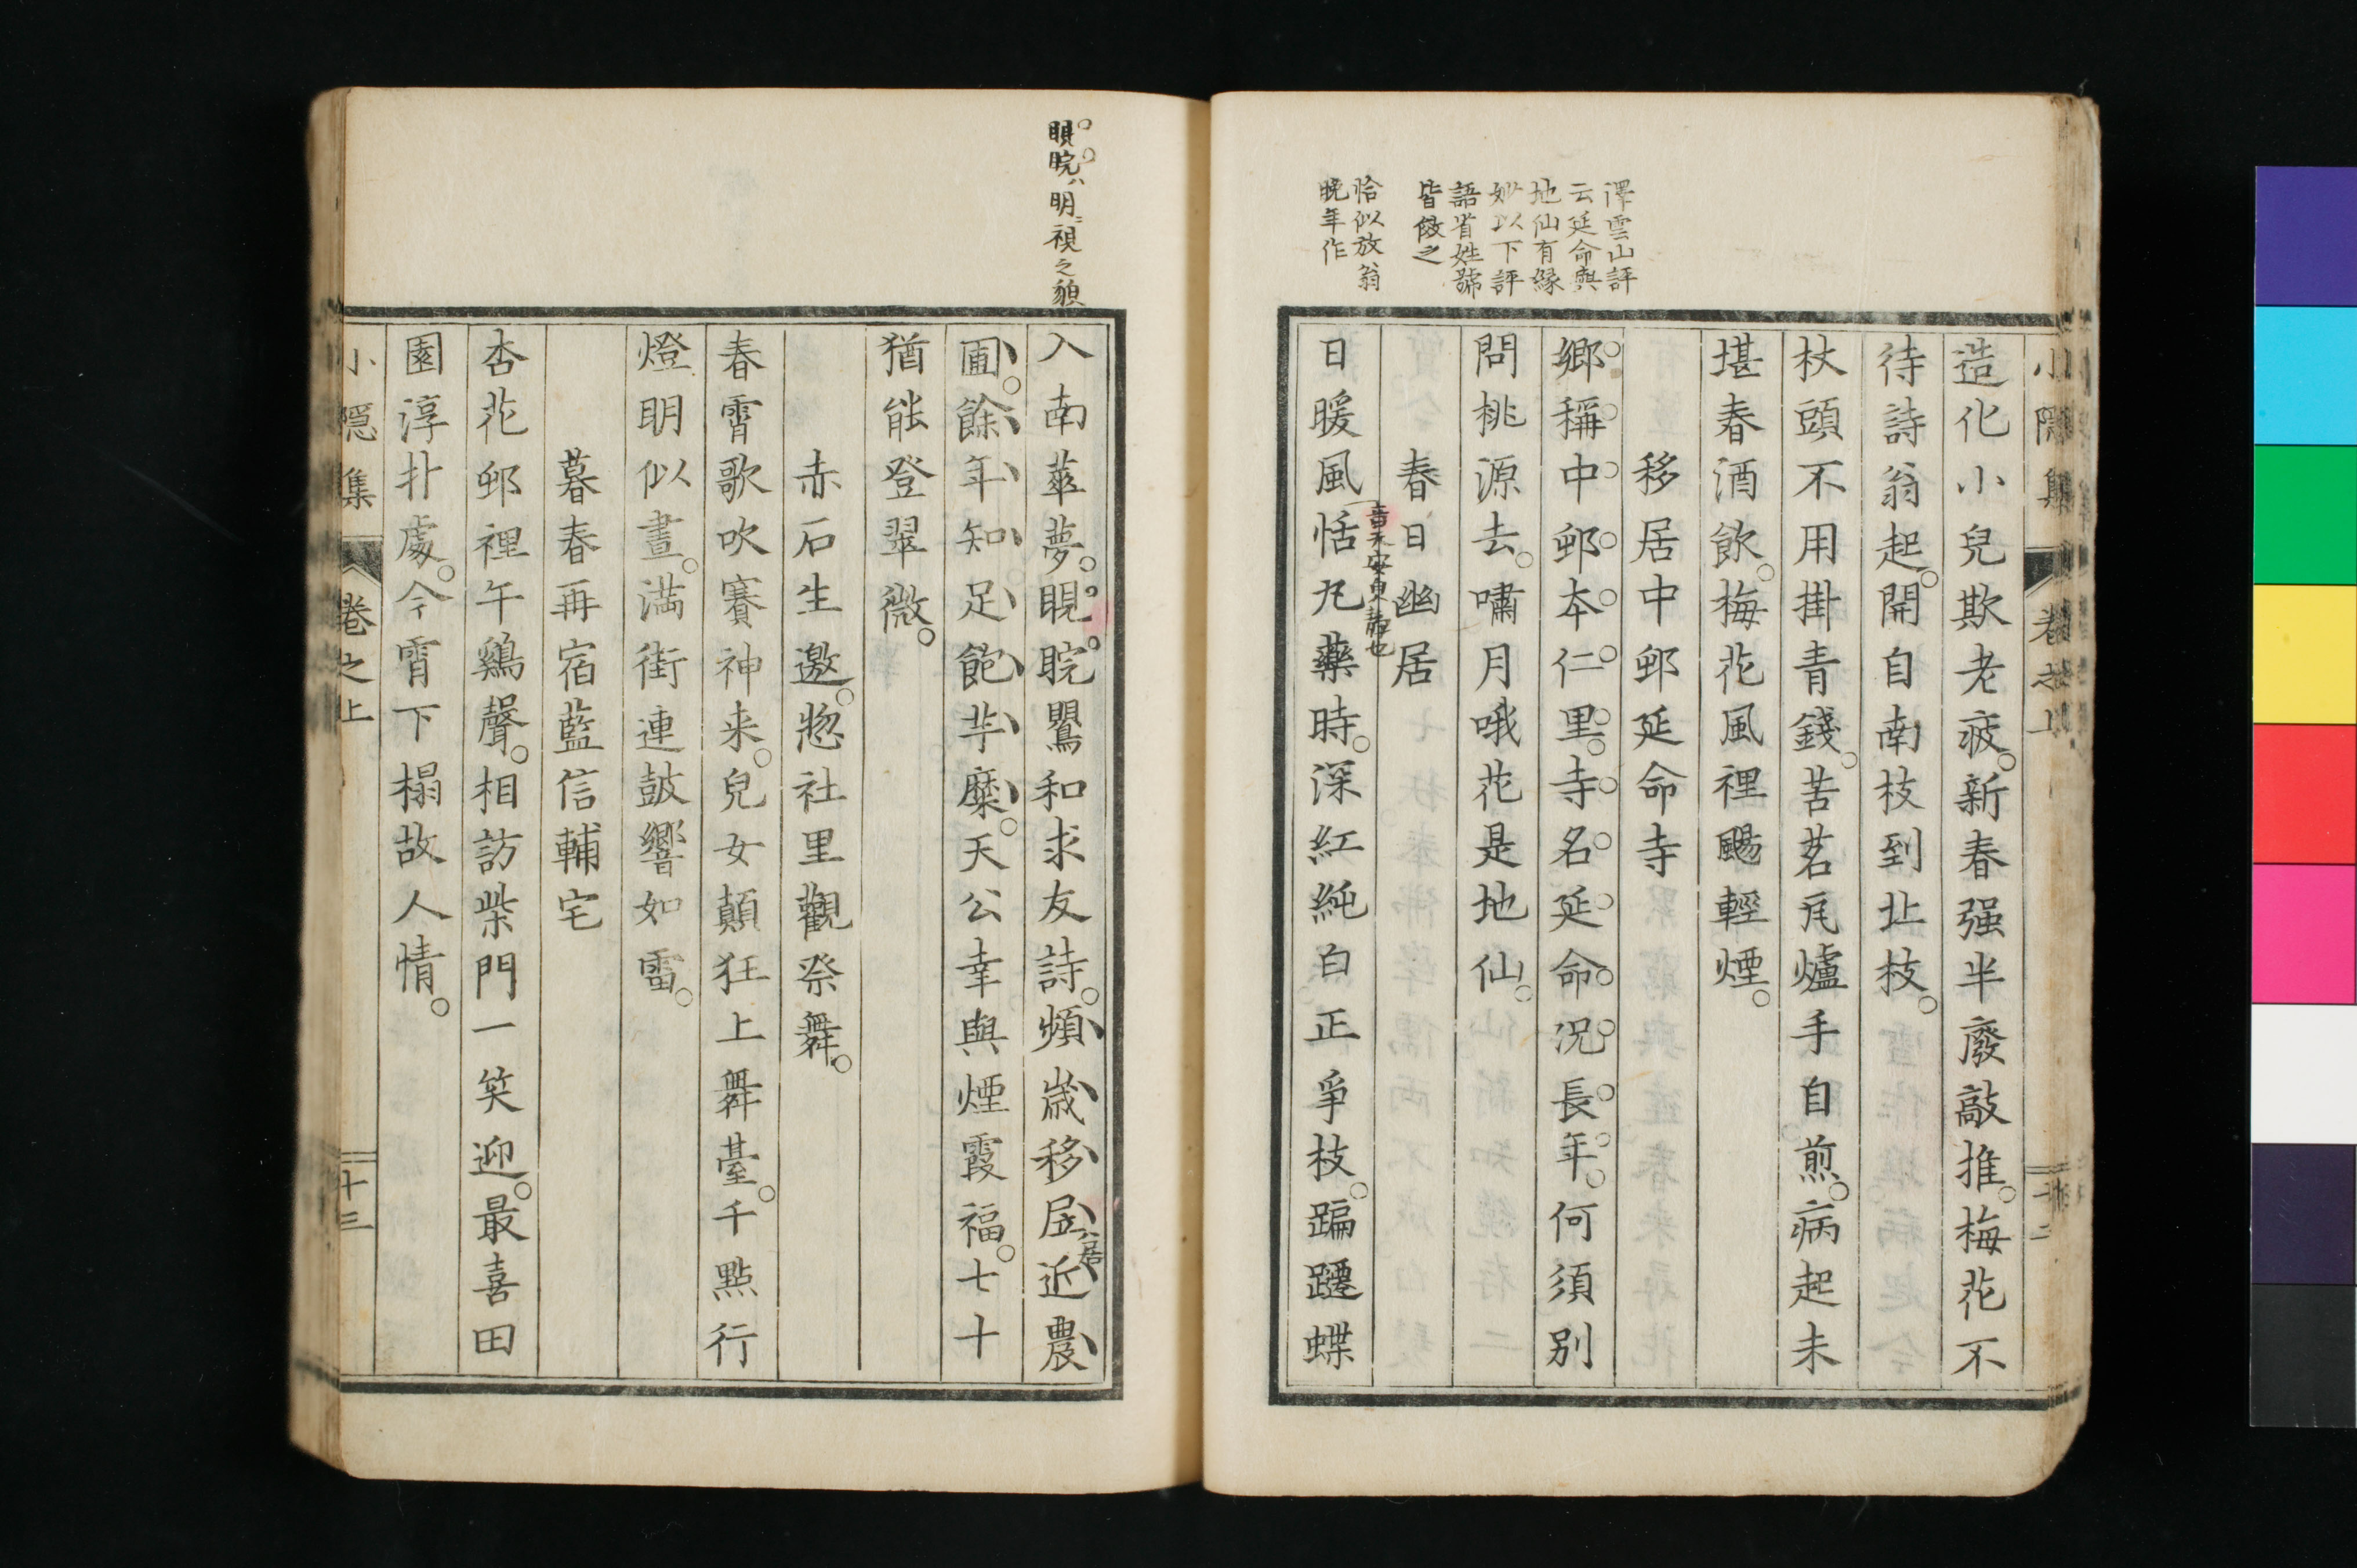 澤雲山評
云延命與
地仙有縁
妙以下評
語省姓號
皆倣之
恰似放翁
晩年作
小隱集
卷之上
造化小兒欺老疲。新春强半廢敲推。梅花不
待詩翁起。開自南枝到北枝。
杖頭不用掛青錢。苦茗瓦爐手自煎。病起未
堪春酒飲。梅花風裡颺輕煙。
移居中邨延命寺
鄉稱中邨本仁里。寺名延命況長年。何須別
問桃源去。嘯月哦花是地仙。
春日幽居
日暖風恬九藥時。深紅純白正爭枝。蹁躚蝶
眼睆ハ明ニ視之貌
入南華夢。睍睆鸎和求友詩。頻歲移居近農
居
圃。餘年知足飽芋糜。天公幸與煙霞福。七十
猶能登翠微。
赤石生邀。惣社里觀祭舞。
春霄歌吹賽神来。兒女顛狂上舞臺。千點行
燈明似晝。滿街連鼓響如雷。
暮春再宿藍信輔宅
杏花邨裡午鷄聲。相訪柴門一笑迎。最喜田
園淳朴處。今宵下榻故人情。
小隱集
卷之上
十三